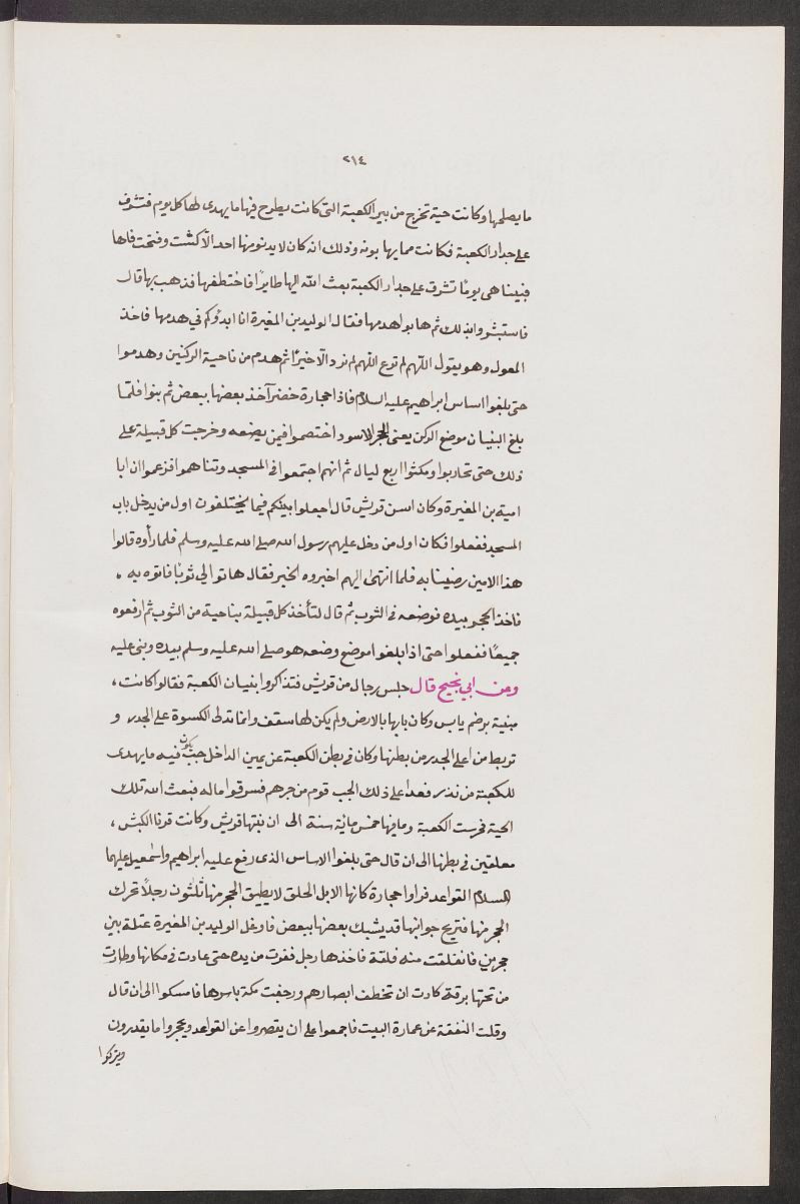 ٢١٤
ما يصلحها وكانت حية تخرج من بير الكعبة التى كانت يطرح فيها ما يهدى لها كل يوم فتشرف
على جدار الكعبة فكانت مما يهابونه وذلك انه كان لا يدنو منها احد الا كشت وفتحت فاها
فبينا هى يوما تشرف على جدار الكعبة بعث الله اليها طايرا فاختطفها فذهب بها قال
فاستبشروا بذلك ثم هابوا هدمها فقال الوليد بن المغيرة انا ابدؤكم في هدمها فاخذ
المعول وهو يقول اللهم لم ترع اللهم لم نرد الا خيرا ثم هدم من ناحية الركنين وهدموا
حتى بلغوا اساس ابراهيم عليه السلام فاذا حجارة خضر آخذ بعضها ببعض ثم بنوا فلما
بلغ البنيان موضع الركن يعنى الحجر الاسود اختصموا فيمن يضعه وخرجت كل قبيلة على
ذلك حتى تحاربوا ومكثوا اربع ليال ثم انهم اجتمعوا في المسجد وتناهموا فزعموا ان ابا
امية بن المغيرة وكان اسن قريش قال اجعلوا بينكم فيما تختلفون اول من يدخل باب
المسجد ففعلوا فكان اول من دخل عليهم رسول الله صلى الله عليه وسلم فلما رأوه قالوا
هذا الامين رضينا به فلما انتهى اليهم اخبروه الخبر فقال هاتوا لي ثوبا فاتوه به .
فاخذ الحجر بيده فوضعه فى الثوب ثم قال لتأخذ كل قبيلة بناحية من الثوب ثم ارفعوه
جميعا ففعلوا حتى اذا بلغوا موضع وضعه هو صلى الله عليه وسلم بيده وبنى عليه
وعن ابي نجيح قال جلس رجال من قريش فتذاكروا بنيان الكعبة فقالوا كانت ،
مبنية برضم يابس وكان بابها بالارض ولم يكن لها سقف وانما تدلى الكسوة على الجدر و
تربط من اعلى الجدر من بطنها وكان فى بطن الكعبة عن يمين الداخل جب يكون فيه ما يهدى
للكعبة من نذر فعدا على ذلك الجب قوم من جرهم فسرقوا ماله فبعث الله تلك
الحية فحرست الكعبة وما فيها خمس مائة سنة الى ان بنتها قريش وكانت قرنا الكبش ،
معلقتين في بطنها الى ان قال حتى بلغوا الاساس الذى رفع عليه ابراهيم واسمعيل عليهما
السلام القواعد فراوا حجارة كانها الابل الخلق لا يطيق الحجر منها ثلثون رجلا تحرك
الحجر منها فتريح جوانبها قد يشبك بعضها ببعض فادخل الوليد بن المغيرة عتلة بين
حجرين فانفلقت منه فلقة فاخذها رجل ففرت من يده حتى عادت فى مكانها وطارت
من تحتها برقة كادت ان تخطف ابصارهم ورجفت مكة باسرها فامسكوا الى ان قال
وقلت النفقة عن عمارة البيت فاجمعوا على ان يقصروا عن القواعد ويحجروا ما يقدرون
ويتركوا